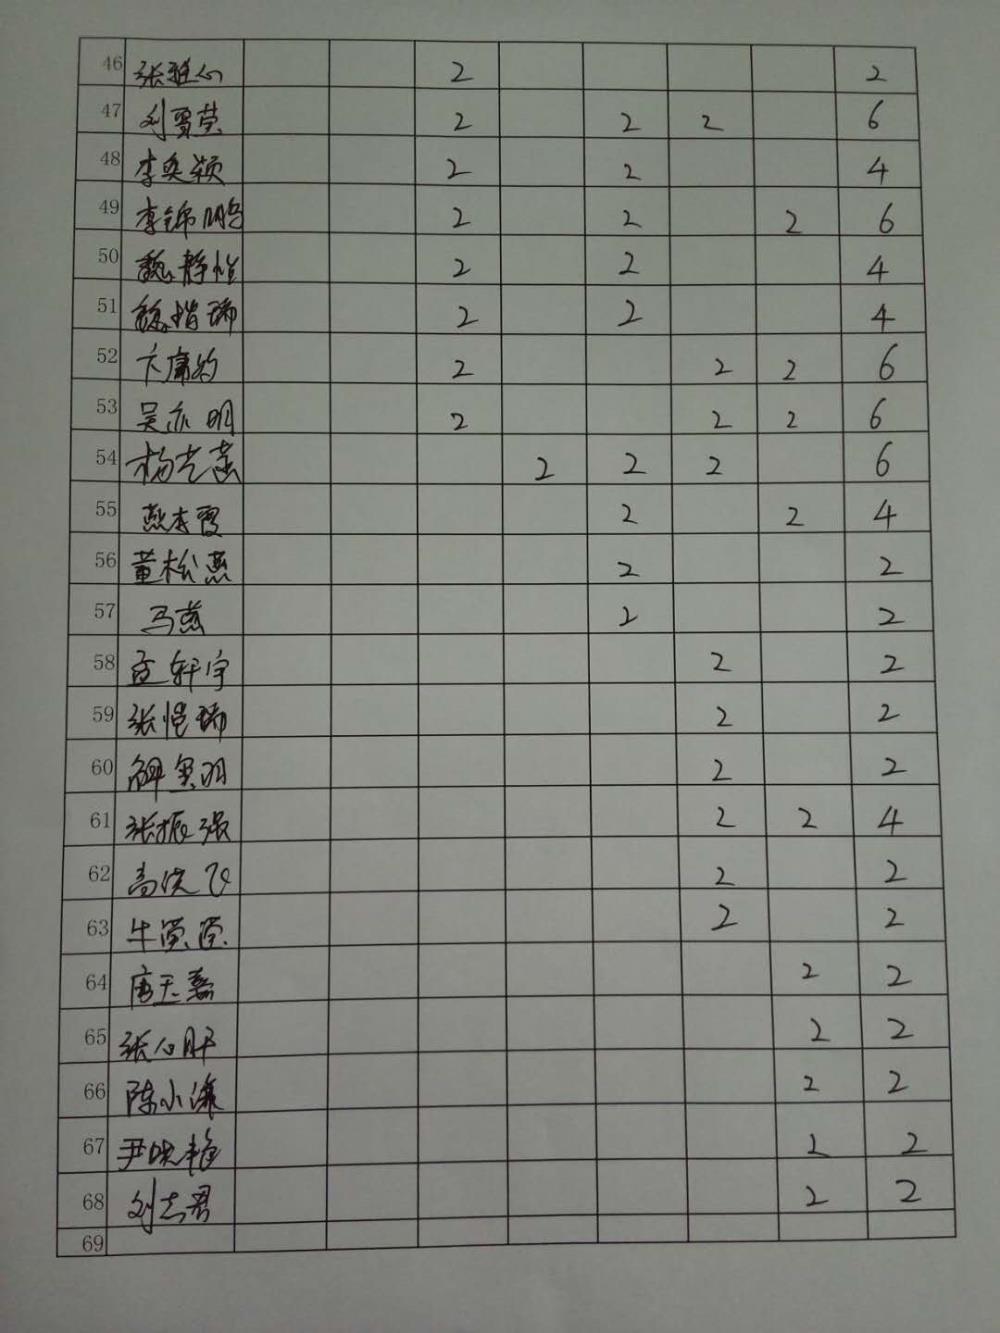 46 张雅心 2 2
47 刘 莹 2 2 2 6
48 李奕颖 2 2 4
49 李锦鹏 2 2 2 6
50 魏静怡 2 2 4
51 瑞 2 2 4
52 卞庸 2 2 2 6
53 吴亦明 2 2 2 6
54 杨艺 2 2 2 6
55 燕 2 2 4
56 董松燕 2 2
57 马燕 2 2
58 孟轩宇 2 2
59 张恺瑞 2 2
60 2 2
61 张振强 2 2 4
62 高洪飞 2 2
63 牛莹莹 2 2
64 唐天 2 2
65 张心 2 2
66 陈小 2 2
67 尹晓艳 2 2
68 刘志君 2 2
69